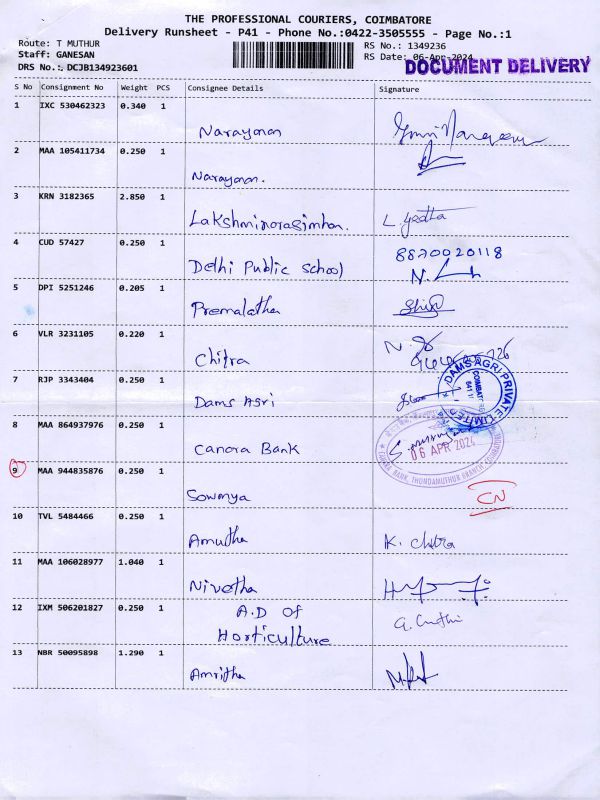 THE PROFESSIONAL COURIERS, COIMBATORE
Delivery Runsheet - P41 - Phone No.:0422-3505555 - Page No.:1
Route: T MUTHUR
RS No.: 1349236
Staff: GANESAN
RS Date: 06-Apr-2024
DRS No.: DCJB134923601
DOCUMENT DELIVERY
S No Consignment No Weight PCS Consignee Details Signature
1 IXC 530462323 0.340 1
Narayanan
2 MAA 105411734 0.250 1
Narayanan.
3 KRN 3182365 2.850 1
Lakshminarasimhan.
L. Geetha
4 CUD 57427 0.250 1
8870020118
Delhi Public School
5 DPI 5251246 0.205 1
Premalatha
6 VLR 3231105 0.220 1
Chitra
7 RJP 3343404 0.250 1
Dams Agri
DAMS AGRI PRIVATE LIMITED
COIMBATORE
8 MAA 864937976 0.250 1
Canara Bank
06 APR 2024
CANARA BANK, THONDAMUTHUR BRANCH, COIMBATORE
9 MAA 944835876 0.250 1
Sowmya
CN
10 TVL 5484466 0.250 1
Amutha
K. Chitra
11 MAA 106028977 1.040 1
Nivetha
12 IXM 506201827 0.250 1
A.D Of
Horticulture
13 NBR 50095898 1.290 1
Amritha